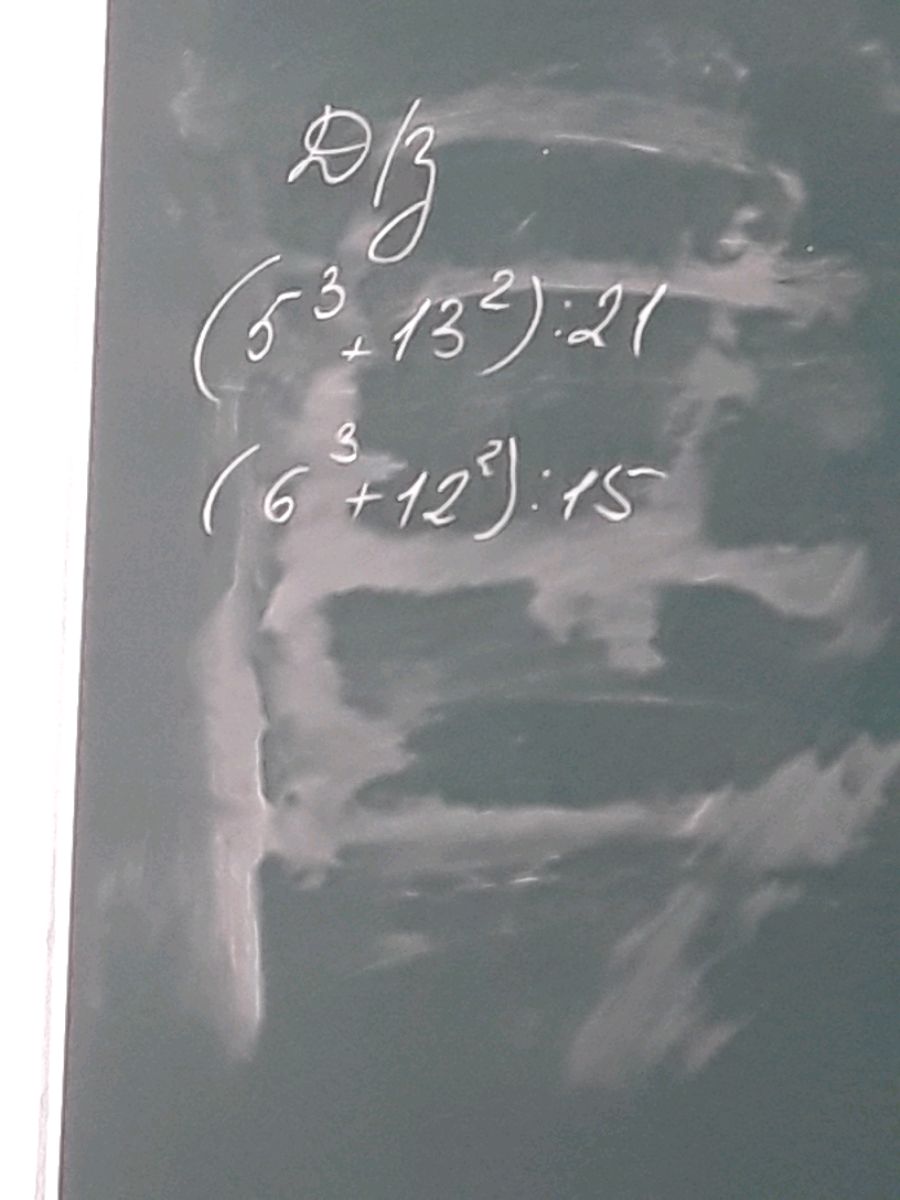 Д/з
(5³+13²):21
(6³+12²):15